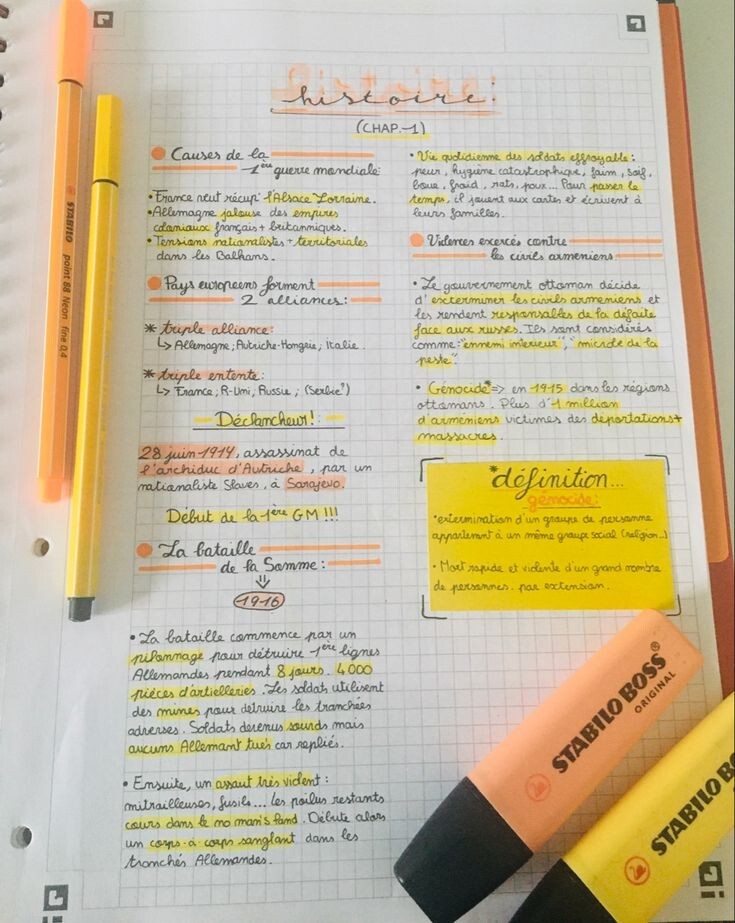 histoire:
(CHAP.1)
Causes de la
1ère guerre mondiale:
• France veut récup' l'Alsace Lorraine.
• Allemagne jalouse des empires
coloniaux français + britanniques.
• Tensions nationalistes + territoriales
dans les Balkans.
Pays européens forment
2 alliances:
* triple alliance:
↳ Allemagne; Autriche-Hongrie; Italie.
* triple entente:
↳ France; R-Uni; Russie; (Serbie?)
Déclancheur!
28 juin 1914, assassinat de
l'archiduc d'Autriche, par un
nationaliste Slaves, à Sarajevo.
Début de la 1ère GM !!!
La bataille
de la Somme:
⇓
1916
• La bataille commence par un
pilonnage pour détruire 1ère lignes
Allemandes pendant 8 jours. 4000
pièces d'artielleries. Les soldats utilisent
des mines pour détruire les tranchées
adverses. Soldats devenus sourds mais
aucuns Allemant tués car repliés.
• Ensuite, un assaut très violent:
mitrailleuses, fusils... les poilus restants
cours dans le no man's land. Débute alors
un corps-à-corps sanglant dans les
tranchés Allemandes.
• Vie quotidienne des soldats effroyable:
peur, hygiène catastrophique, faim, soif,
boue, froid, rats, poux... Pour passer le
temps, il jouent aux cartes et écrivent à
leurs familles.
Violences exercés contre
les civils arméniens:
• Le gouvernement ottoman décide
d'exterminer les civils arméniens et
les rendent responsables de la défaite
face aux russes. Ils sont considérés
comme: "ennemi intérieur", "microbe de la
peste".
• Génocide* => en 1915 dans les régions
ottomans. Plus d'1 million
d'arméniens victimes des déportations +
massacres.
*définition...
génocide:
• extermination d'un groupe de personne
appartenant à un même groupe social (religion...)
• Mort rapide et violente d'un grand nombre
de personnes. par extension.
STABILO point 88 Neon fine 0,4
STABILO BOSS®
ORIGINAL
STABILO BO